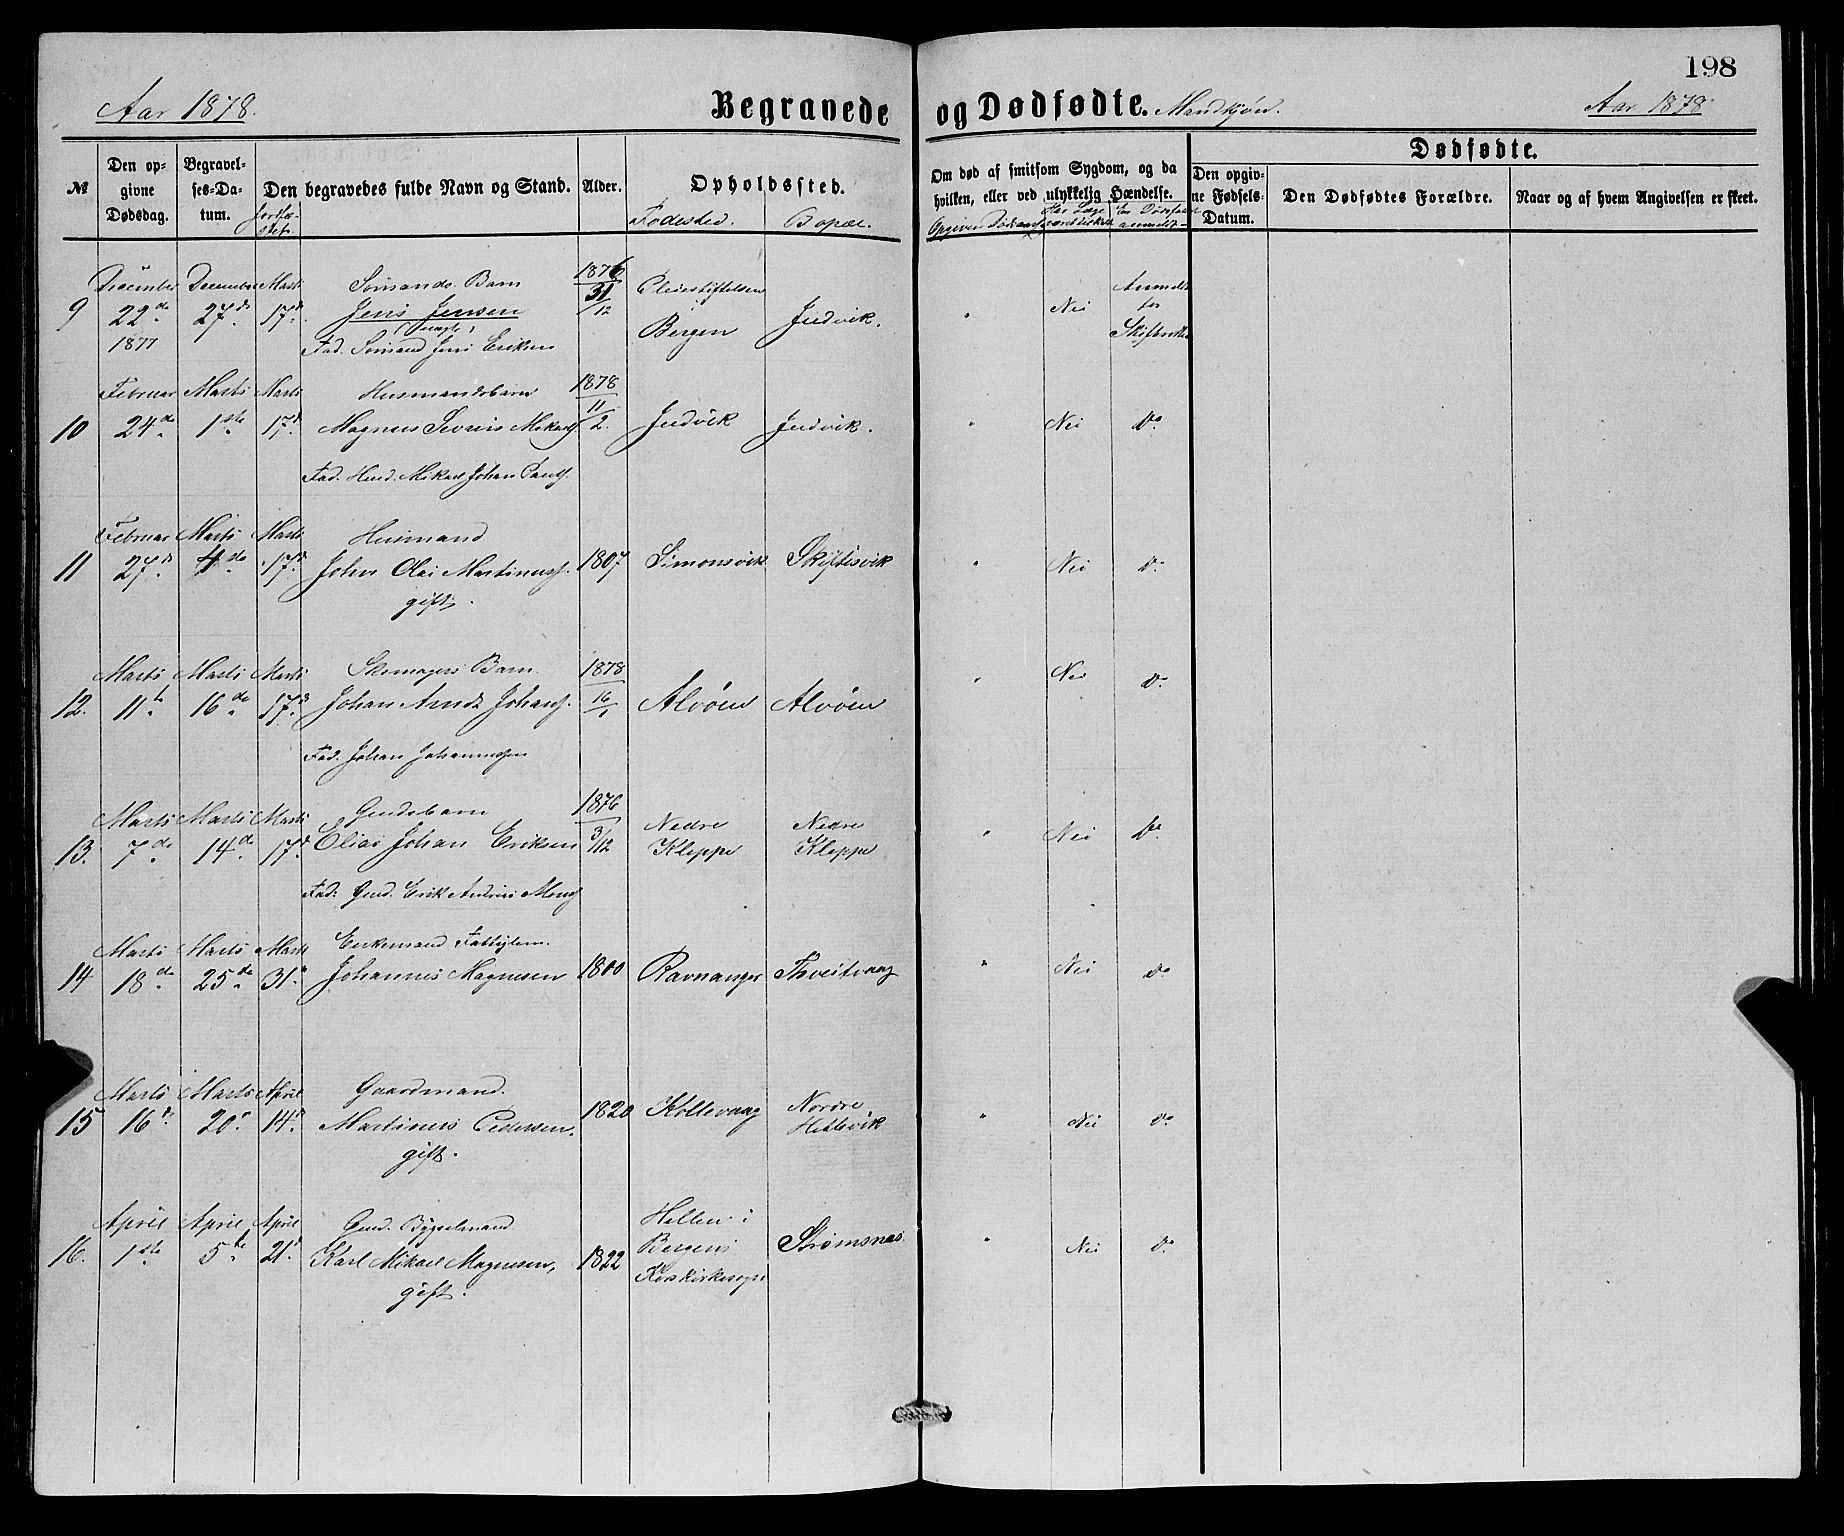 198
Aar 1878. Begravede og Dødfødte. Mandkjøn. Aar 1878.
№ Den opgivne Dødsdag. Begravelses-Datum. Jordfæstet. Den begravedes fulde Navn og Stand. Alder. Opholdssted. Fødested. Bopæl.
Om død af smitsom Sygdom, og da hvilken, eller ved ulykkelig Hændelse.
Dødfødte.
Den opgivne Fødsels-Datum. Den Dødfødtes Forældre. Naar og af hvem Angivelsen er skeet.
December December Marts Sømands Barn 1876
9 22de 27de 17de Jens Jensen 31/12 Pleiestiftelsen Bergen Indvik. " Nei Anmeldt for Skifteretten
1877 Fad. Sømand Jens Eriksen
Februar Marts Marts Husmandsbarn 1878
10 24de 1ste 17de Magnus Severin Mikaels. 11/2 Indvik Indvik. " Nei Do
Fad. Husd. Mikael Johan Pauls.
Februar Marts Marts Husmand
11 27de 4de 17de John Olai Martinuss. 1807 Simonsvik Skiftesvik " Nei Do
gift.
Marts Marts Marts Skomagers Barn. 1878
12. 11te 16de 17de Johan Arndt Johans. 16/1 Alvøen Alvøen " Nei Do
Fad. Johan Johannessen
Marts Marts Marts Gmdsbarn 1876
13. 7de 14de 17de Elias Johan Eriksen 3/12 Nedre Kleppe Nedre Kleppe " Nei Do
Fad. Gmd. Erik Andreas
Marts Marts Marts Enkemand Fattiglem.
14 18de 25de 31te Johannes Magnesen 1800 Ravnanger Tveitvaag " Nei do
Marts Marts April Gaardmand.
15 16de 20de 14de Martinus Pedersen, 1820 Kollevaag Nordre Hetlevik " Nei do
gift.
April April April Gmd. Bygselmand
16. 1ste 5te 21de Karl Mikael Magnesen, 1822 Hellen i Bergens Korskirkesogn Strømsnes. " Nei do
gift.